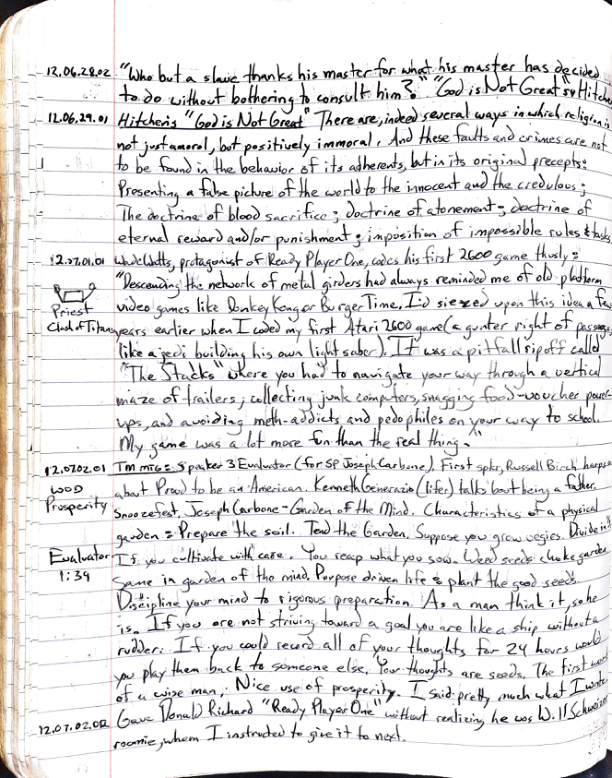 12.06.28.02 "Who but a slave thanks his master for what his master has decided
to do without bothering to consult him?" "God is Not Great" by Hitchens
12.06.29.01 Hitchens "God is Not Great" There are, indeed several ways in which religion is
not just amoral, but positively immoral. And these faults and crimes are not
to be found in the behavior of its adherents, but in its original precepts:
Presenting a false picture of the world to the innocent and the credulous;
The doctrine of blood sacrifice; doctrine of atonement; doctrine of
eternal reward and/or punishment; imposition of impossible rules & tasks
12.07.01.01 Wade Watts, protagonist of Ready Player One, codes his first 2600 game thusly:
"Descending the network of metal girders had always reminded me of old platform
video games like Donkey Kong or BurgerTime. I'd siezed upon this idea a few
Priest
Clash of Titans years earlier when I coded my first Atari 2600 game (a gunter right of passage
like a jedi building his own light saber). It was a pitfall ripoff called
"The Stacks" where you had to navigate your way through a vertical
maze of trailers, collecting junk computers, snagging food-voucher power-
ups, and avoiding meth-addicts and pedophiles on your way to school.
My game was a lot more fun than the real thing."
12.0702.01 Tm = Speaker 3 Evaluator (for SP Joseph Carbone). First spkr, Russell Birch
WOD about Proud to be an American. Kenneth (lifer) talks bout being a father.
Prosperity Snoozefest. Joseph Carbone - Garden of the Mind. Characteristics of a physical
garden = Prepare the soil. Tend the Garden. Suppose you grow vegies. Divide in
Evaluator If you cultivate with care. You reap what you sow. Weed seeds choke garden
1:39 Same in garden of the mind. Purpose driven life & plant the good seeds.
Discipline your mind to rigorous preparation. As a man think it, so he
is. If you are not striving toward a goal you are like a ship without a
rudder. If you could record all of your thoughts for 24 hours would
you play them back to someone else. Your thoughts are seeds. The first
of a wise man,. Nice use of prosperity. I said pretty much what I wrote
12.07.02.02 Gave Donald Richard "Ready Player One" without realizing he was Will
roomie, whom I instructed to give it to next.